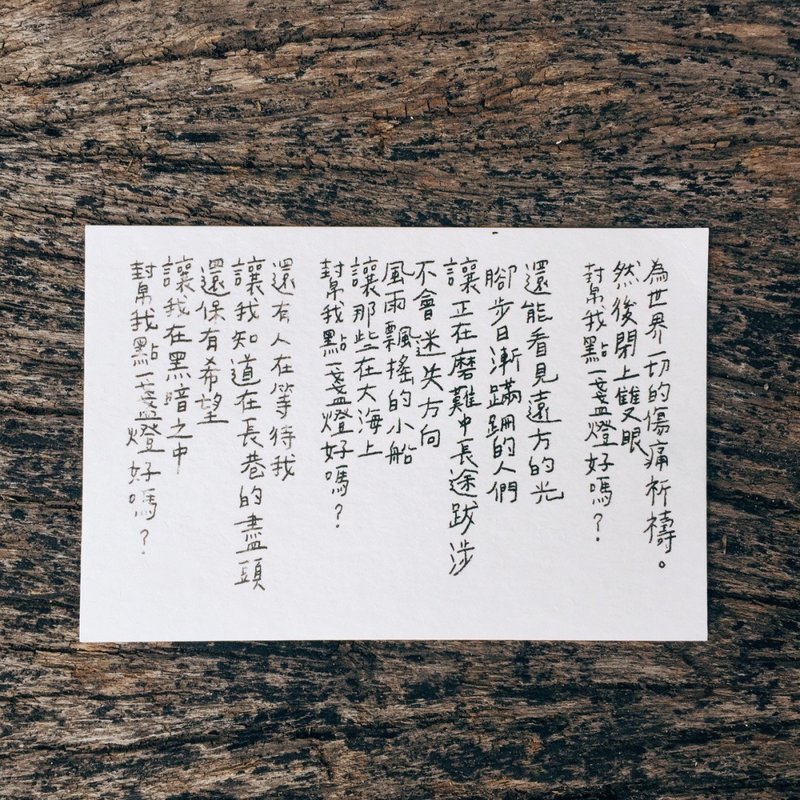 幫我點一盞燈好嗎？
讓我在黑暗之中
還保有希望
讓我知道在長巷的盡頭
還有人在等待我
幫我點一盞燈好嗎？
讓那些在大海上
風雨飄搖的小船
不會迷失方向
讓正在磨難中長途跋涉
腳步日漸蹣跚的人們
還能看見遠方的光
幫我點一盞燈好嗎？
然後閉上雙眼
為世界一切的傷痛祈禱。